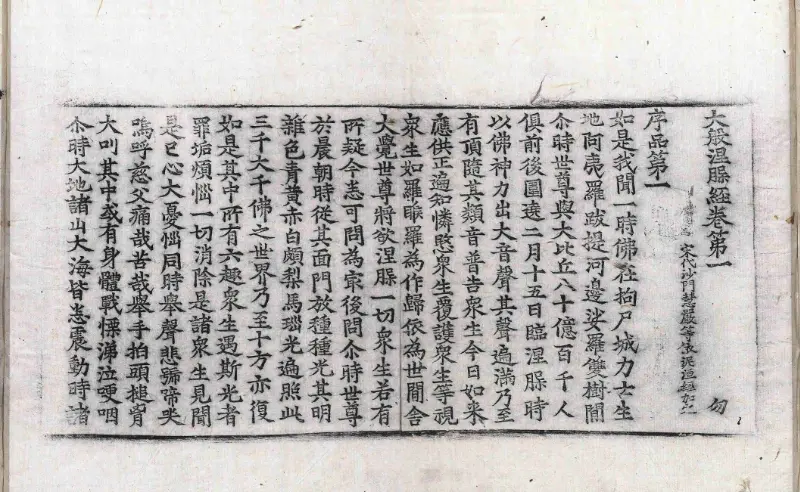 大般涅槃經卷第一
宋代沙門慧嚴等依泥洹經加之
勿
序品第一
如是我聞一時佛在拘尸城力士生
地阿夷羅跋提河邊娑羅雙樹間
尒時世尊與大比丘八十億百千人
俱前後圍遶二月十五日臨涅槃時
以佛神力出大音聲其聲遍滿乃至
有頂隨其類音普告衆生今日如來
應供正遍知憐愍衆生覆護衆生等視
衆生如羅睺羅為作歸依為世間舍
大覺世尊將欲涅槃一切衆生若有
所疑今悉可問為冣後問尒時世尊
於晨朝時從其面門放種種光其明
雜色青黃赤白頗梨馬瑙光遍照此
三千大千佛之世界乃至十方亦復
如是其中所有六趣衆生遇斯光者
罪垢煩惱一切消除是諸衆生見聞
是已心大憂惱同時舉聲悲號啼哭
嗚呼慈父痛哉苦哉舉手拍頭搥胷
大叫其中或有身體戰慄涕泣哽咽
尒時大地諸山大海皆悉震動時諸